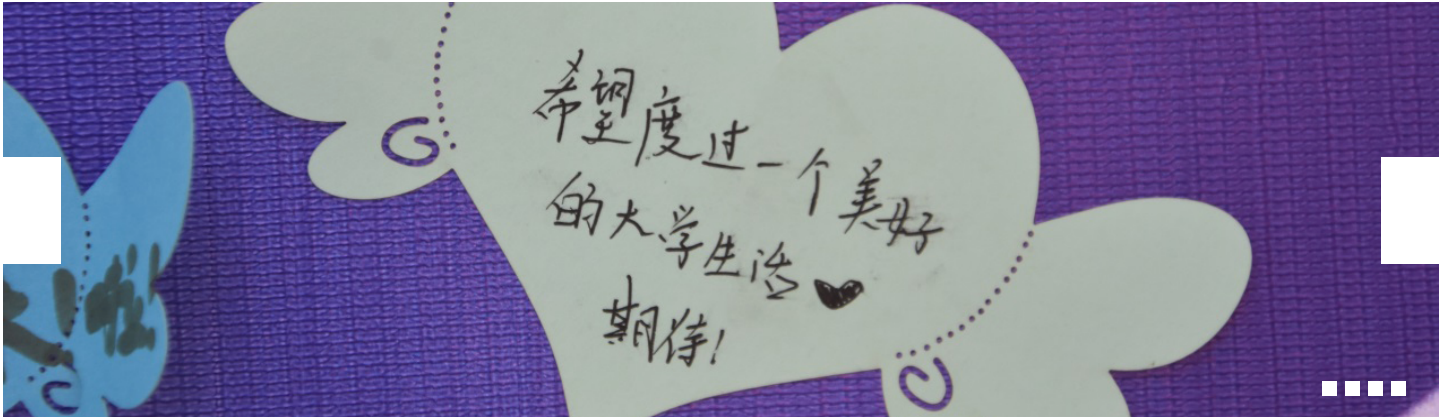 希望度过一个美好
的大学生活
期待!
啦